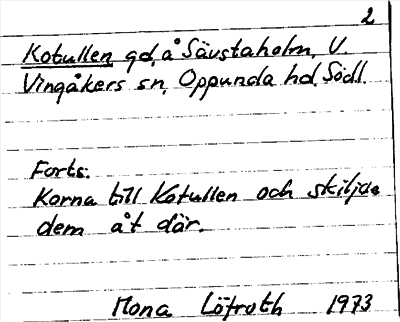 2
Kotullen gd, å Sävstaholm, V.
Vingåkers sn, Oppunda hd, Södl.
Forts.
Korna till Kotullen och skiljde
dem åt där.
Mona Löfroth 1973